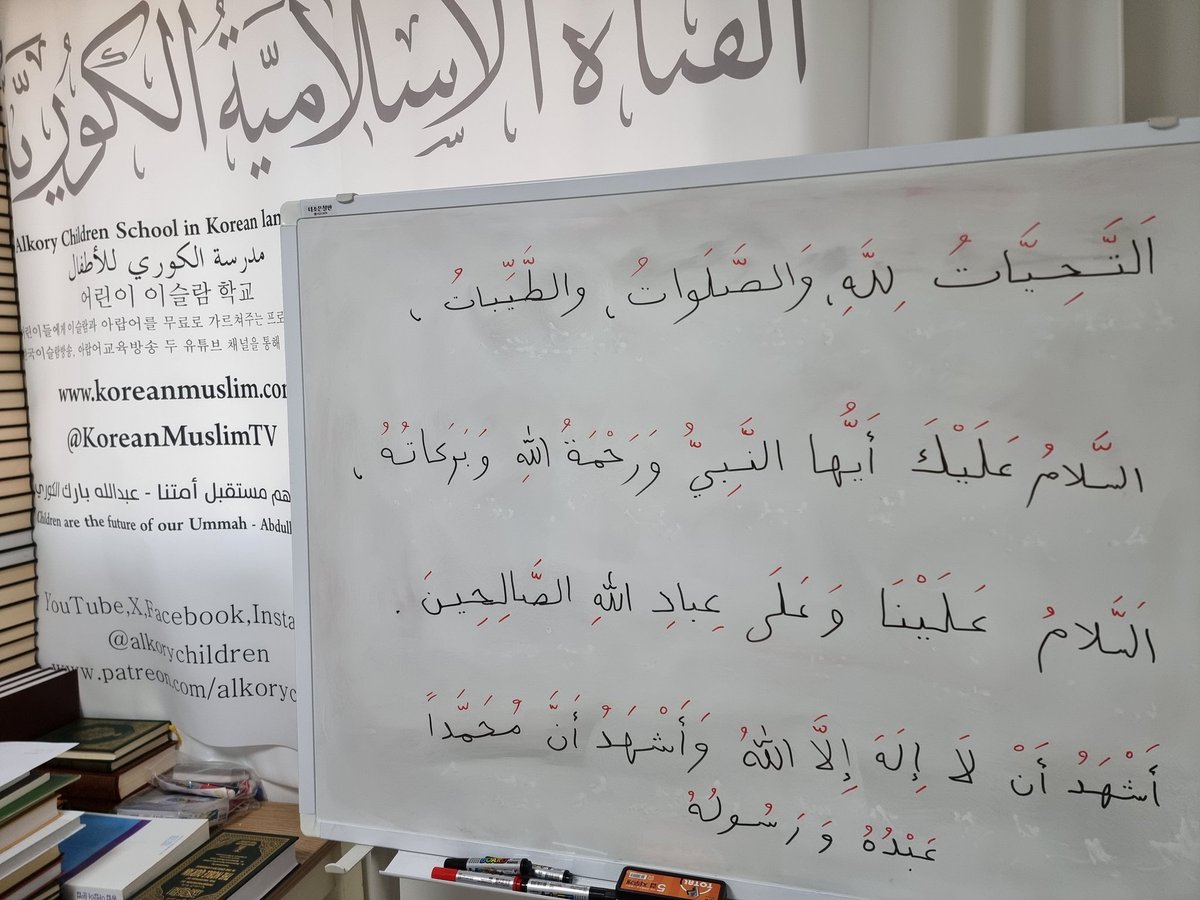 القناة الإِسلاميَّةُ الكوريَّة
Alkory Children School in Korean lan
مدرسة الكوري للأطفال
어린이 이슬람 학교
어린이들에게 이슬람과 아랍어를 무료로 가르쳐주는 프로
한국이슬람방송, 아랍어교육방송 두 유튜브 채널을 통해
www.koreanmuslim.com
@KoreanMuslimTV
هم مستقبل أمتنا - عبدالله بارك الكوري
Children are the future of our Ummah - Abdull
YouTube,X,Facebook,Insta
@alkorychildren
www.patreon.com/alkoryc
اَلتَّحِيَّاتُ لِلَّهِ، وَالصَّلَوَاتُ، والطَّيِّبَاتُ،
السَّلامُ عَلَيْكَ أَيُّها النَّبِيُّ وَرَحْمَةُ اللهِ وَبَرَكاتُهُ،
اَلسَّلامُ عَلَيْنَا وَعَلَى عِبادِ اللهِ الصَّالِحِينَ.
أَشْهَدُ أَنْ لَا إِلَهَ إِلَّا اللهُ وَأَشْهَدُ أَنَّ مُحَمَّداً
عَبْدُهُ وَرَسُولُهُ
5
TOTAL